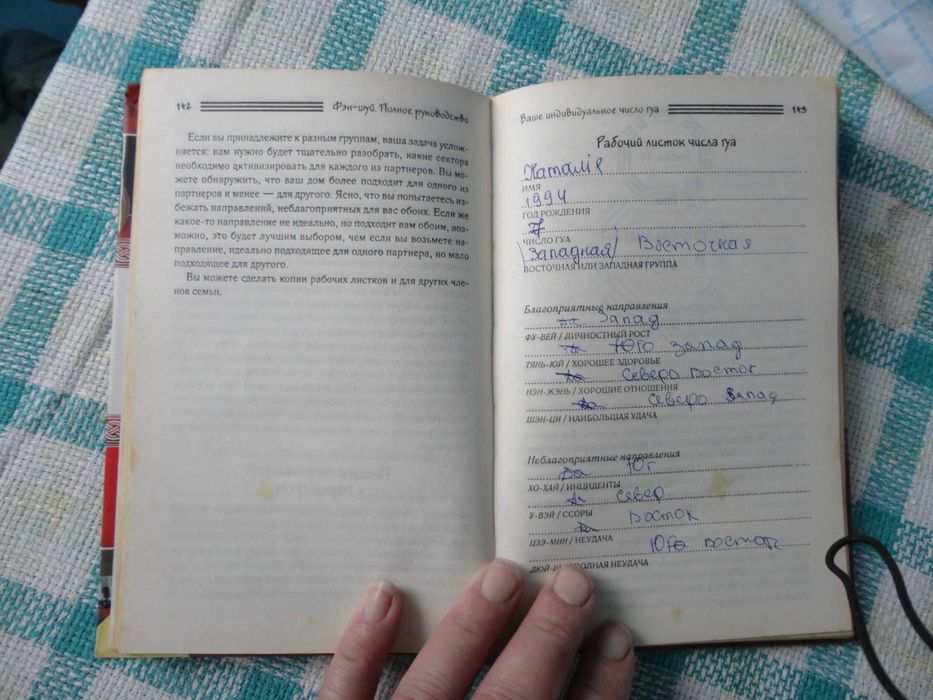 142
Фэн-шуй. Полное руководство
Если вы принадлежите к разным группам, ваша задача услож-
няется: вам нужно будет тщательно разобрать, какие сектора
необходимо активизировать для каждого из партнеров. Вы мо-
жете обнаружить, что ваш дом более подходит для одного из
партнеров и менее — для другого. Ясно, что вы попытаетесь из-
бежать направлений, неблагоприятных для вас обоих. Если же
какое-то направление не идеально, но подходит вам обоим, воз-
можно, это будет лучшим выбором, чем если вы возьмете на-
правление, идеально подходящее для одного партнера, но мало
подходящее для другого.
Вы можете сделать копии рабочих листков и для других чле-
нов семьи.
Ваше индивидуальное число гуа
143
Рабочий листок числа гуа
ИМЯ
1994
ГОД РОЖДЕНИЯ
ЧИСЛО ГУА
(Западная) Восточная
ВОСТОЧНАЯ ИЛИ ЗАПАДНАЯ ГРУППА
Благоприятные направления
Запад
ФУ-ВЕЙ / ЛИЧНОСТНЫЙ РОСТ
Юго Запад
ТЯНЬ-ЮЙ / ХОРОШЕЕ ЗДОРОВЬЕ
Северо Восток
НЭН-ЖЭНЬ / ХОРОШИЕ ОТНОШЕНИЯ
Северо Запад
ШЭН-ЦИ / НАИБОЛЬШАЯ УДАЧА
Неблагоприятные направления
Юг
ХО-ХАЙ / ИНЦИДЕНТЫ
Север
У-ВЭЙ / ССОРЫ
Восток
ЦЗЭ-МИН / НЕУДАЧА
Юго восток
ПОЛНАЯ НЕУДАЧА